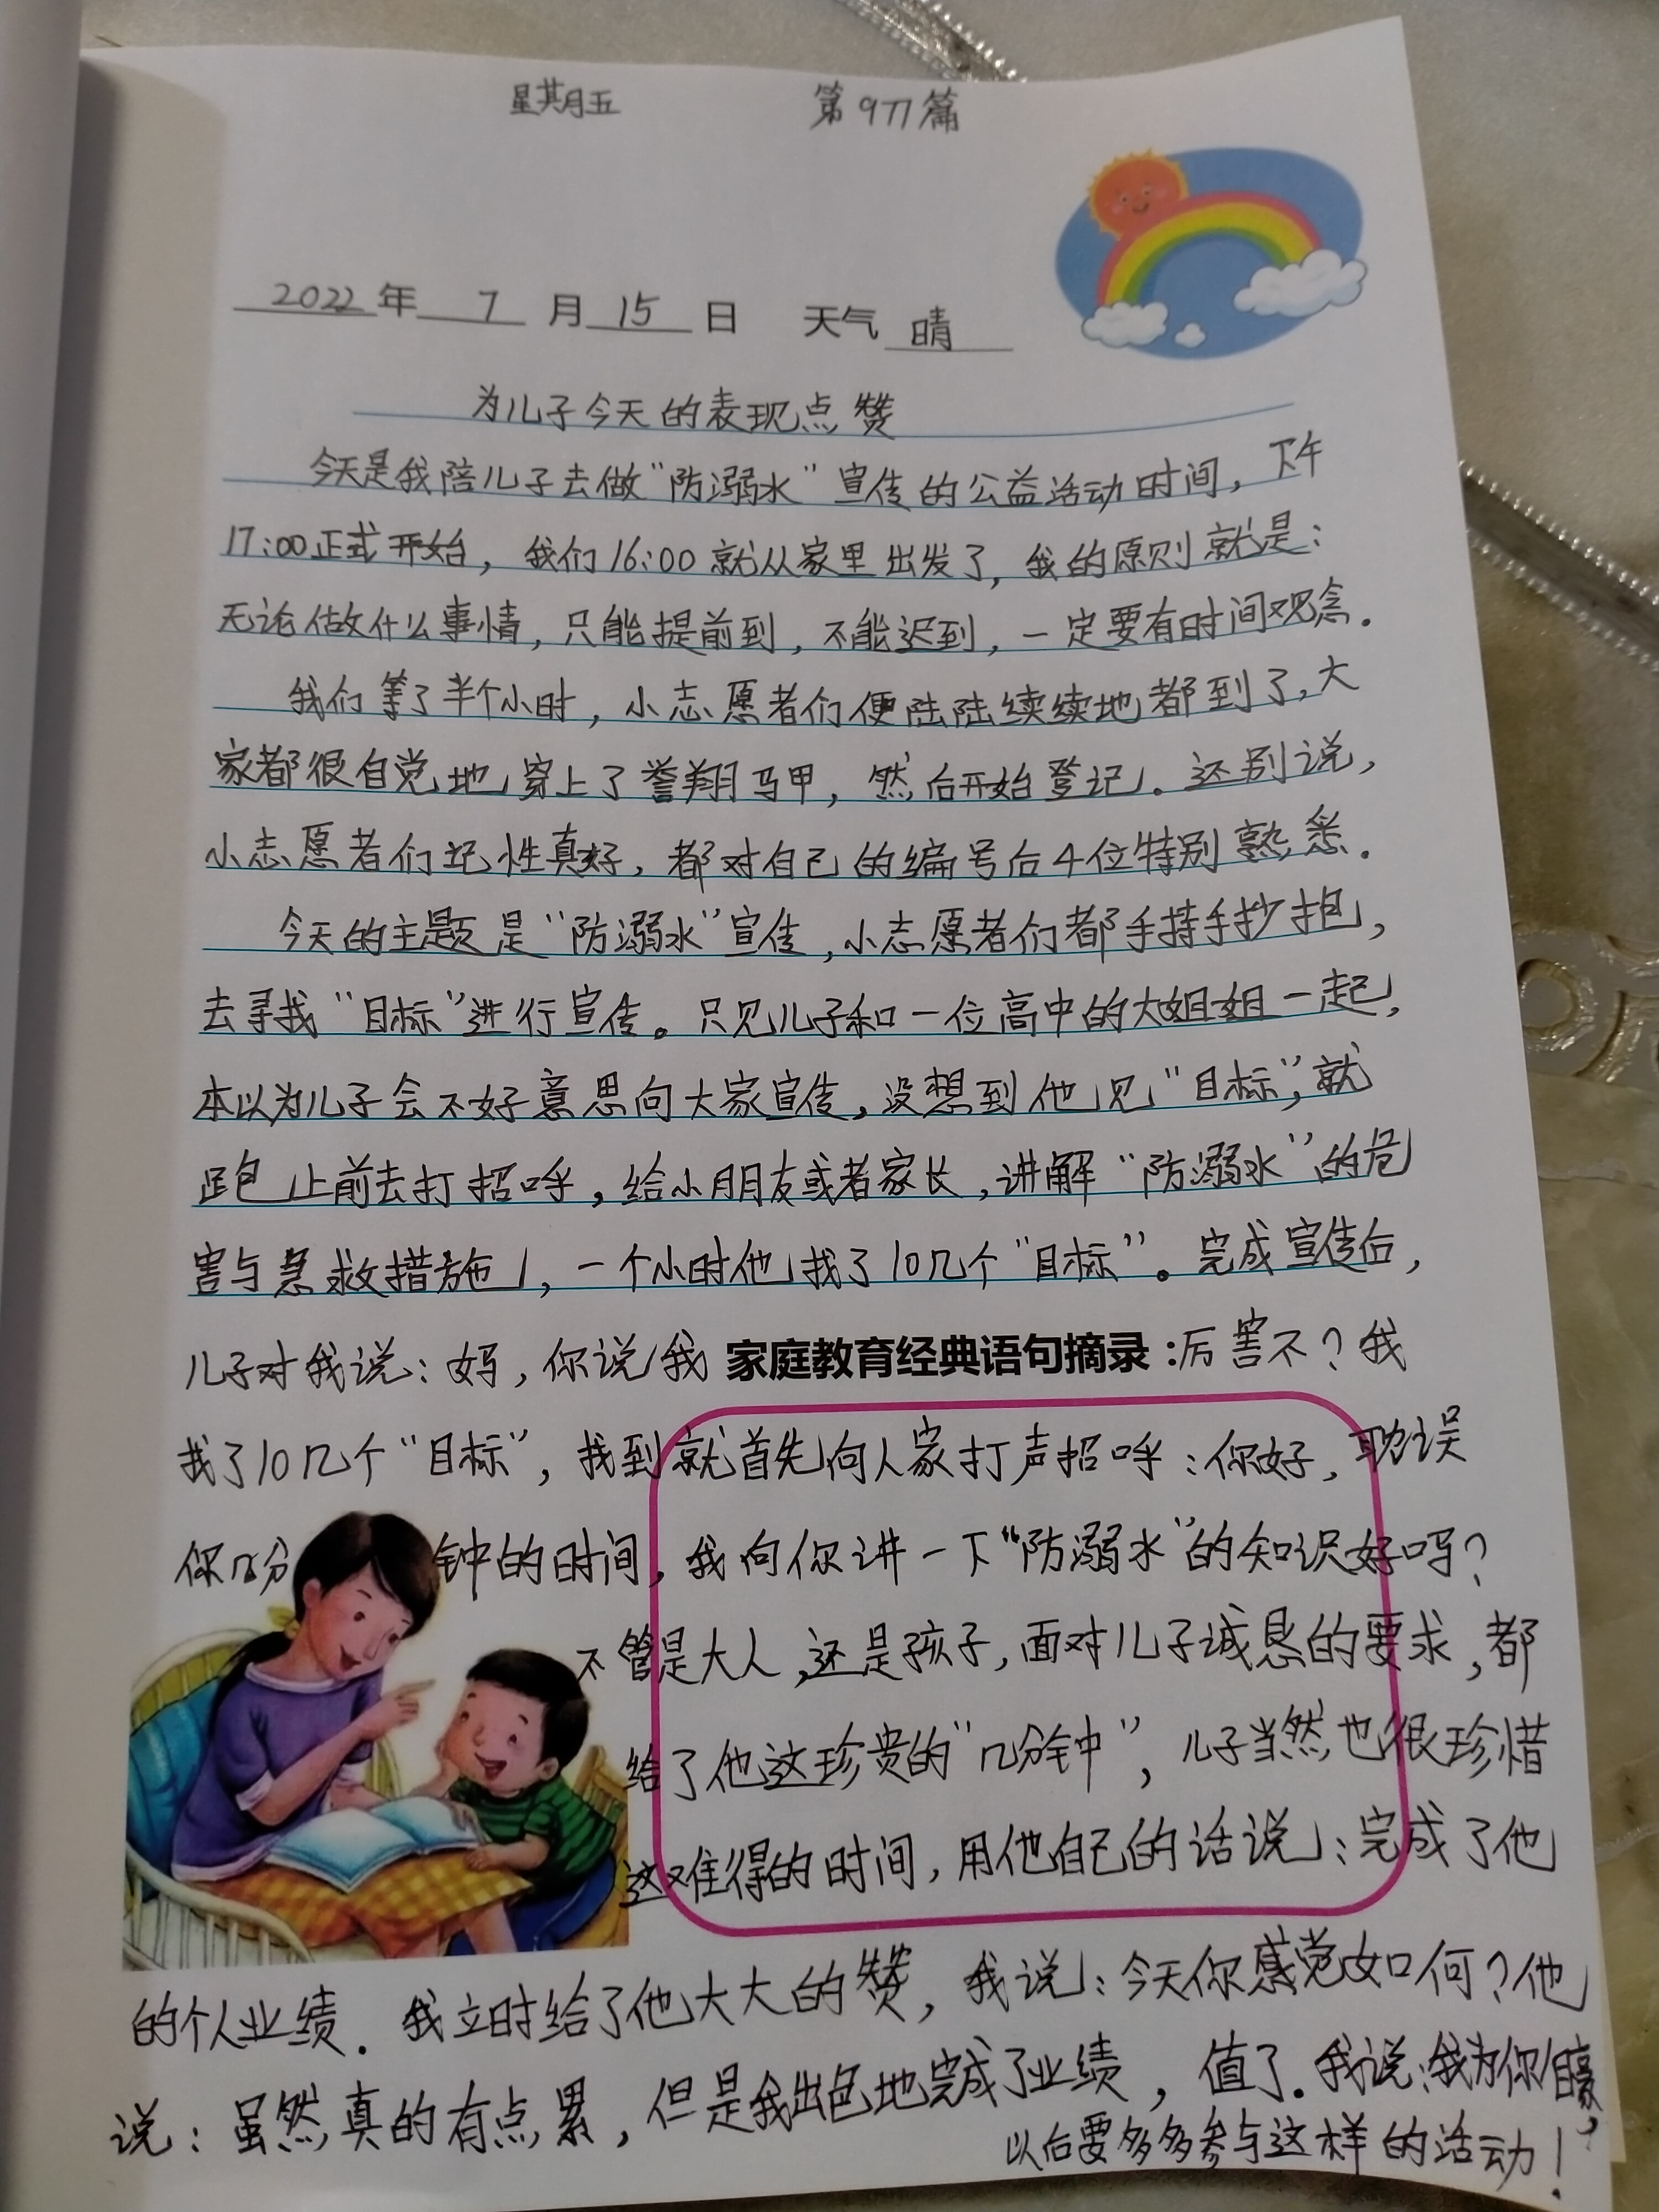 星期五 第977篇
2022年 7 月 15 日 天气 晴
为儿子今天的表现点赞
今天是我陪儿子去做“防溺水”宣传的公益活动时间，下午
17:00正式开始，我们16:00就从家里出发了，我的原则就是：
无论做什么事情，只能提前到，不能迟到，一定要有时间观念.
我们等了半个小时，小志愿者们便陆陆续续地都到了，大
家都很自觉地穿上了誉翔马甲，然后开始登记.还别说，
小志愿者们记性真好，都对自己的编号后4位特别熟悉.
今天的主题是“防溺水”宣传，小志愿者们都手持手抄报，
去寻找“目标”进行宣传。只见儿子和一位高中的大姐姐一起，
本以为儿子会不好意思向大家宣传，没想到他见“目标”，就
跑上前去打招呼，给小朋友或者家长，讲解“防溺水”的危
害与急救措施，一个小时他找了10几个“目标”。完成宣传后，
儿子对我说：妈，你说我 家庭教育经典语句摘录：厉害不？我
找了10几个“目标”，找到就首先向人家打声招呼：你好，耽误
你几分钟的时间，我向你讲一下“防溺水”的知识好吗？
不管是大人，还是孩子，面对儿子诚恳的要求，都
给了他这珍贵的“几分钟”，儿子当然也很珍惜
这难得的时间，用他自己的话说：完成了他
的个人业绩.我立时给了他大大的赞，我说：今天你感觉如何？他
说：虽然真的有点累，但是我出色地完成了业绩，值了.我说：我为你自豪，
以后要多多参与这样的活动！